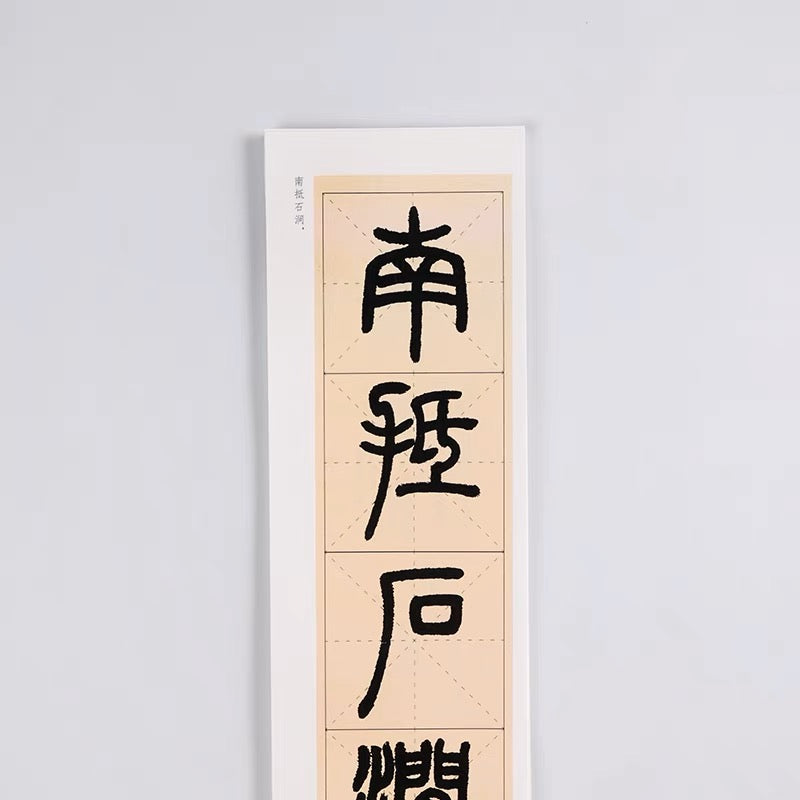 南抵石澗
南抵石涧，